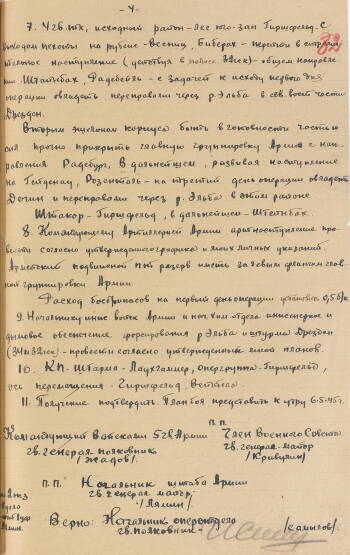 - 4 -
32
7. 4 гв. тк, исходный район - лес юго-зап Гиршфельд. С
выходом пехоты на рубеж - Вессниц, Биберах - перейти в
наступление (действуя в полосе 32 ск) - общем направле-
нии , Радебейль - с задачей к исходу первого дня
операции овладеть переправами через р. Эльба в сев. вост части
Дрезден.
Вторым эшелоном корпуса быть в готовности частью
сил прочно прикрыть главную группировку Армии с на-
правления Радебург, В дальнейшем, развивая наступление
на Гейденау, Розенталь - на третий день операции овладеть
Дечин и переправами через р. Эльба в этом районе
Гиршфельд, в дальнейшем -
8. Командующему Артиллерией Армии артнаступление про-
вести согласно утвержденного графика и моих личных указаний.
Армейский подвижной птп резерв иметь за левым флангом глав-
ной группировки Армии.
Расход боеприпасов на первый день операции 0,5 б/к
9. Начальнику инж. войск Армии и нач. хим. отдела инженерное и
дымовое обеспечение форсирования р. Эльба и штурма Дрезден
(34 и 32 ск) - провести согласно утвержденных мной планов.
10. КП - Штарма - Лаухгаммер, опергруппа - Гиршфельд,
ось перемещения - Гиршфельд,
11. Получение подтвердить План боя представить к утру 6.5.45 г.
П.П.
Командующий Войсками 5 гв. Армии Член Военного Совета
гв. генерал полковник гв. генерал-майор
/Жадов/ /Кривулин/
П.П. Начальник штаба Армии
гв. генерал майор
/Лямин/
Верно: Начальник оперотдела
гв. полковник